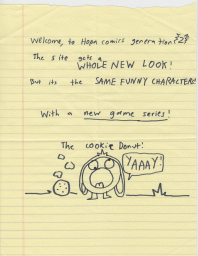 Welcome, to Hopn comics generation
The site gets a
WHOLE NEW LOOK!
But its the SAME FUNNY CHARACTERS
With a new game series!
The cookie Donut!
YAAAY!